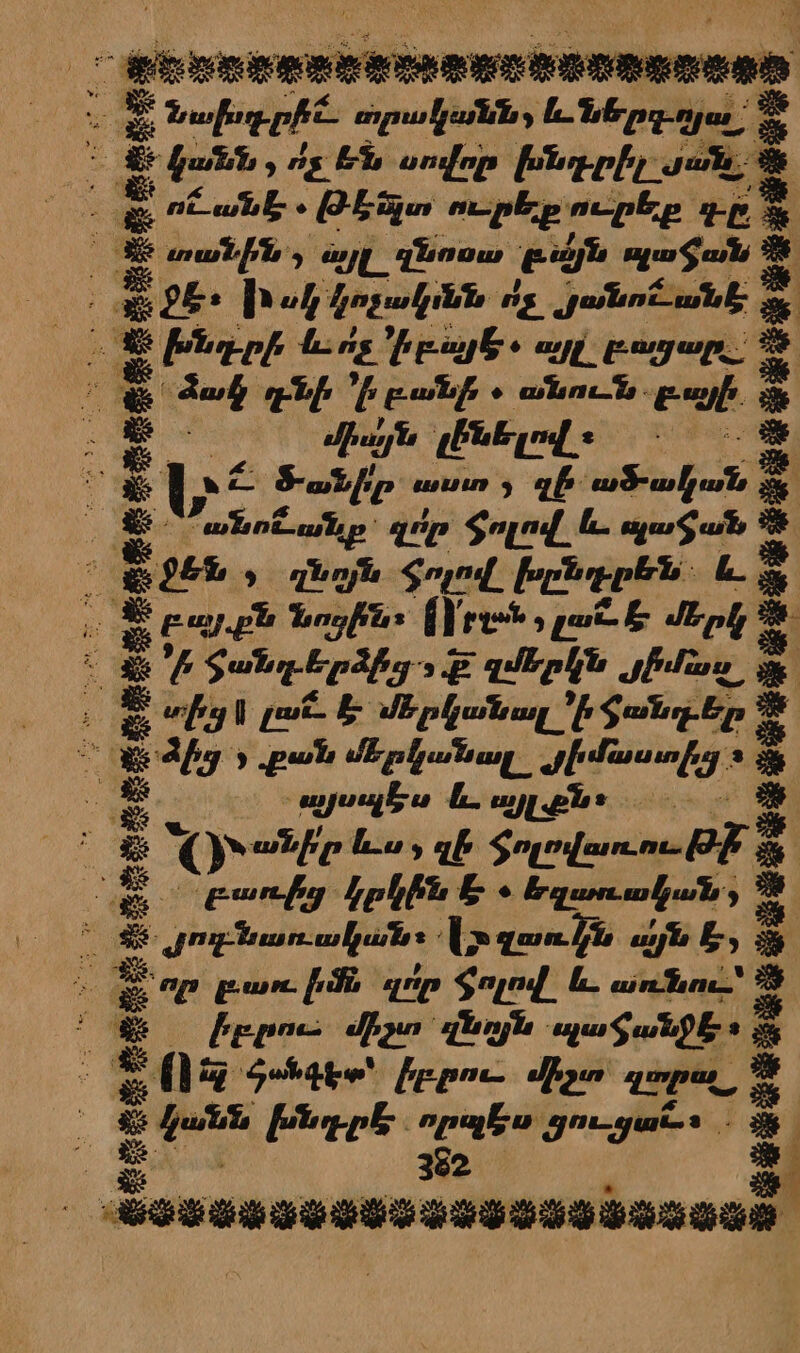 նախդրի՟ւ տրականն, և ներգոյա_
կանն, ո՛չ են սովոր խնդրիլ յան_
ո՟ւանէ ․ թէպտ ուրեք ուրեք գը_
տանին, այլ զնոսա բայն պահան_
ջէ։ Իսկ կոչականն ո՛չ յանո՟ւանէ
խնդրի և ո՛չ ՚ի բայէ ․ այլ բացար_
ձակ դնի ՚ի բանի ․ անուն բայի
միայն լինելով։
Ի՟ւ ծանի՛ր աստ, զի ածական
անո՟ւանք զոր հոլով և պահան_
ջեն, զնոյն հոլով խընդրեն և
բայ.քն նոցին։ Որգոն, լա՟ւ է մերկ
՚ի հանդերձից, ք՟ զմերկն յիմաս_
տից ॥ լա՟ւ է մերկանալ ՚ի հանդեր_
ձից, քան մերկանալ յիմաստից։
այսպէս և այլքն։
Ծանի՛ր ևս, զի հոլովառութի՟
բառից կրկին է ․ եզառական,
յոգնառական։ Եզառկն այն է,
որ բառ իմն զոր հոլով և առնու՝
իբրու միշտ զնոյն պահանջէ։
Որպ հանգէտ՝ իբրու միշտ զտրա_
կանն խնդրէ որպէս ցուցա՟ւ։
382